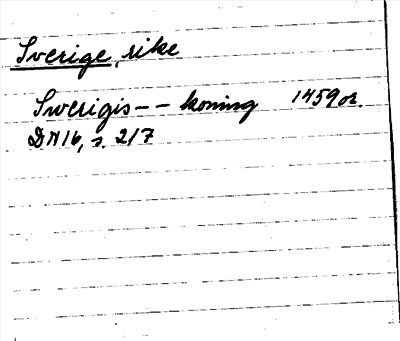 Sverige, rike
Swerigis-- koning 1459 or.
DN16, s. 217